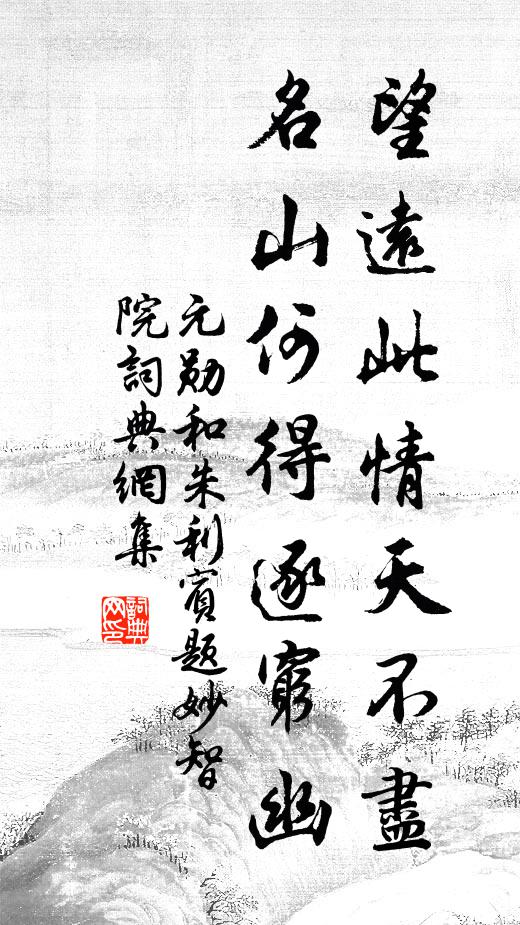 望遠此情天不盡
名山何得逐窮幽
元勛和朱利賓題妙智
院詞典網集
詞典
网印